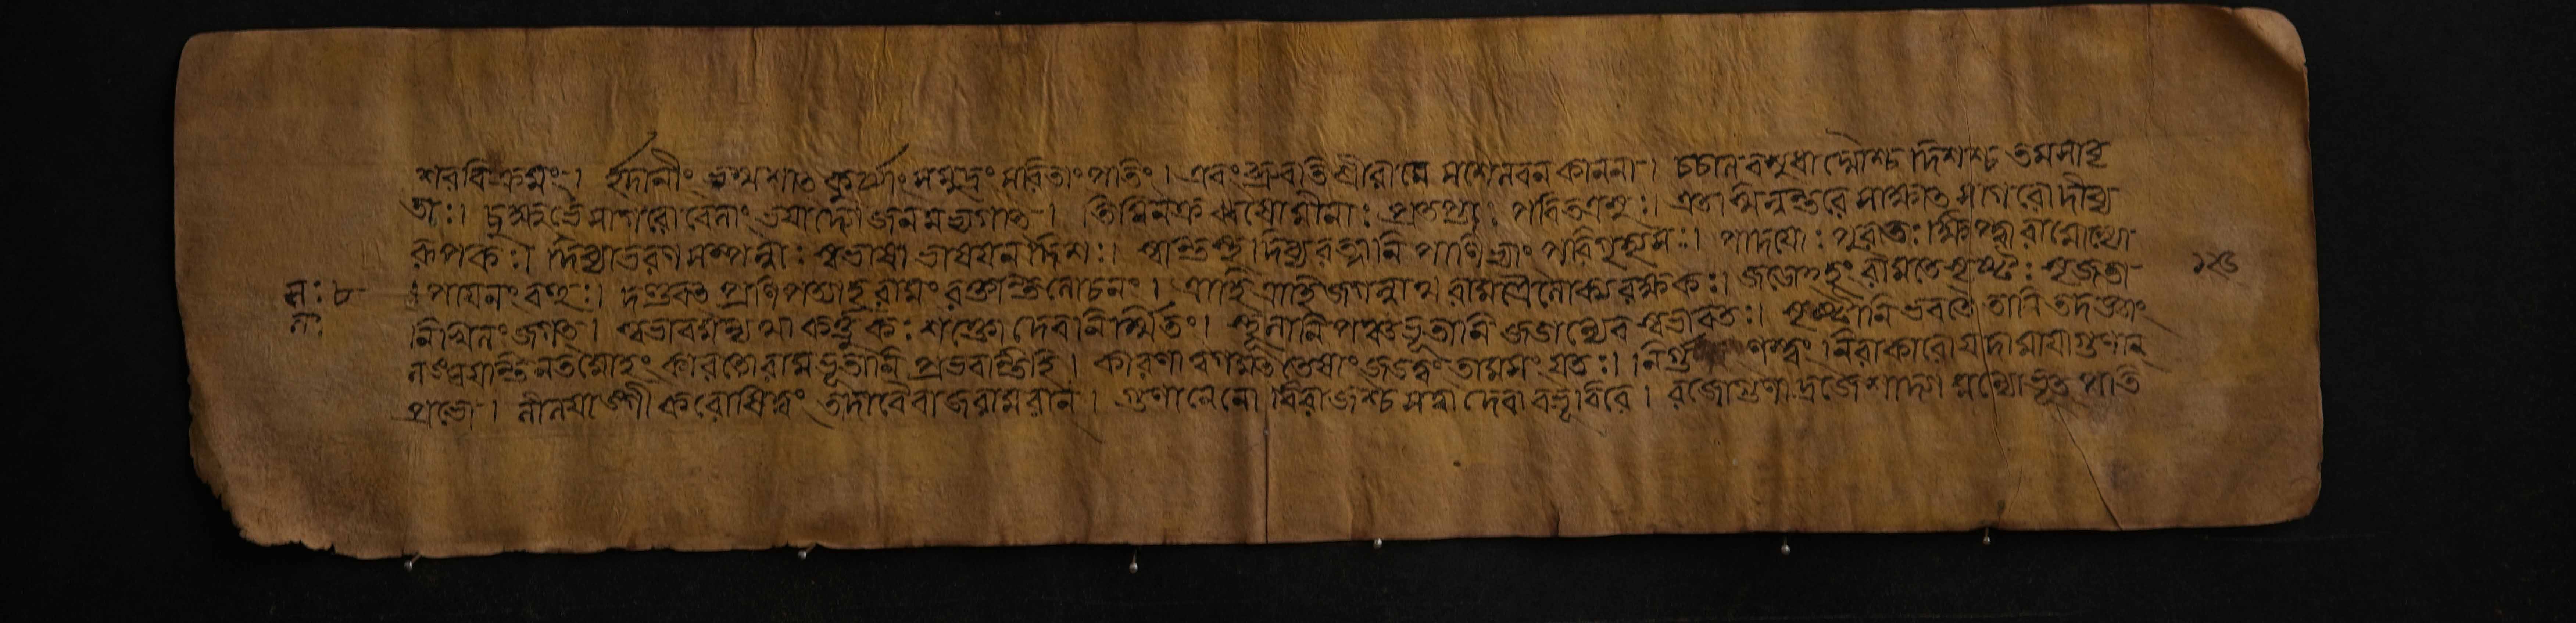 শরবিক্রমং। ইদানীং ভস্মশাত কুর্য্যাং সমুদ্রং সরিতাংপতিং। এবং ব্রুবতি শ্রীরামে সশৈলবন কাননা। চচাল বসুধা দ্যৌশ্চ দিশশ্চ তমসাবৃ
তাঃ। চুক্ষুভে সাগরো বেলাং ভয়াদ্যোজনমভ্যগাত। তিমিনক্রঝষামীনাঃ প্রতপ্তাঃ পরিতত্রসুঃ। এতস্মিন্নন্তরে সাক্ষাত সাগরো দীব্য
রূপকঃ। দিব্যাভরণ সম্পন্নঃ স্বভাষা ভাষয়ন দিশঃ। স্বান্তস্থ দিব্যরত্নানি পাণিভ্যাং পরিগৃহ্যসঃ। পাদয়োঃ পুরতঃ ক্ষিপ্ত্বা রামস্যো
পায়নং বহুঃ। দণ্ডবত প্রণিপত্যাহ রামং রক্তান্তলোচনং। ত্রাহি ত্রাহি জগন্নাথ রামত্রৈলোক্যরক্ষকঃ। জড়োহহং রামতে সৃষ্টঃ সৃজতা
নিখিলং জগত। স্বভাবমন্যথা কর্ত্তুং কঃ শক্তো দেবনির্ম্মিতং। স্থূলানি পঞ্চভূতানি জড়ান্যেব স্বভাবতঃ। সৃষ্টানি ভবতে তানি তদাজ্ঞাং
নলঙ্ঘয়ন্তি নতমোহং কারতো রাম ভূতানি প্রভবন্তিহি। কারণানুগমাত তেষাং জড়ত্বং তামসং যতঃ। নির্গু ণস্ত্বং নিরাকারো যদামায়াগুণান
প্রভো। লীলয়াঙ্গী করোষিত্বং তদাবৈবাজরামরান। গুণাত্মনো বিরাজশ্চ সত্বা দেবা বভূবিরে। রজোগুণা দ্রজেশাদ্যা মন্যোর্ভূত পতি
রাঃ ৮
লঃ
১২৬